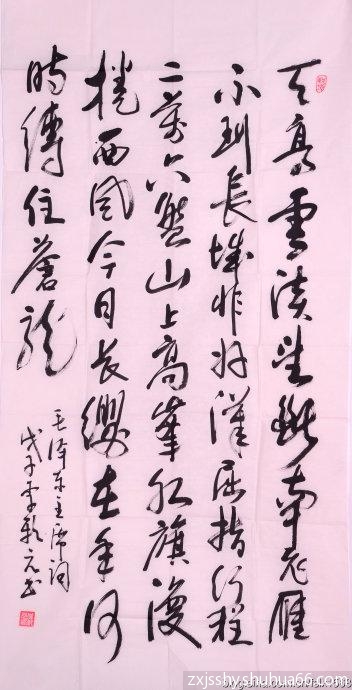 天高雲淡望斷南飛雁
不到長城非好漢屈指行程
二萬六盤山上高峯紅旗漫
捲西風今日長纓在手何
時縛住蒼龍
毛泽东主席詞
戊子 书
zxjsshyshuhua66.com